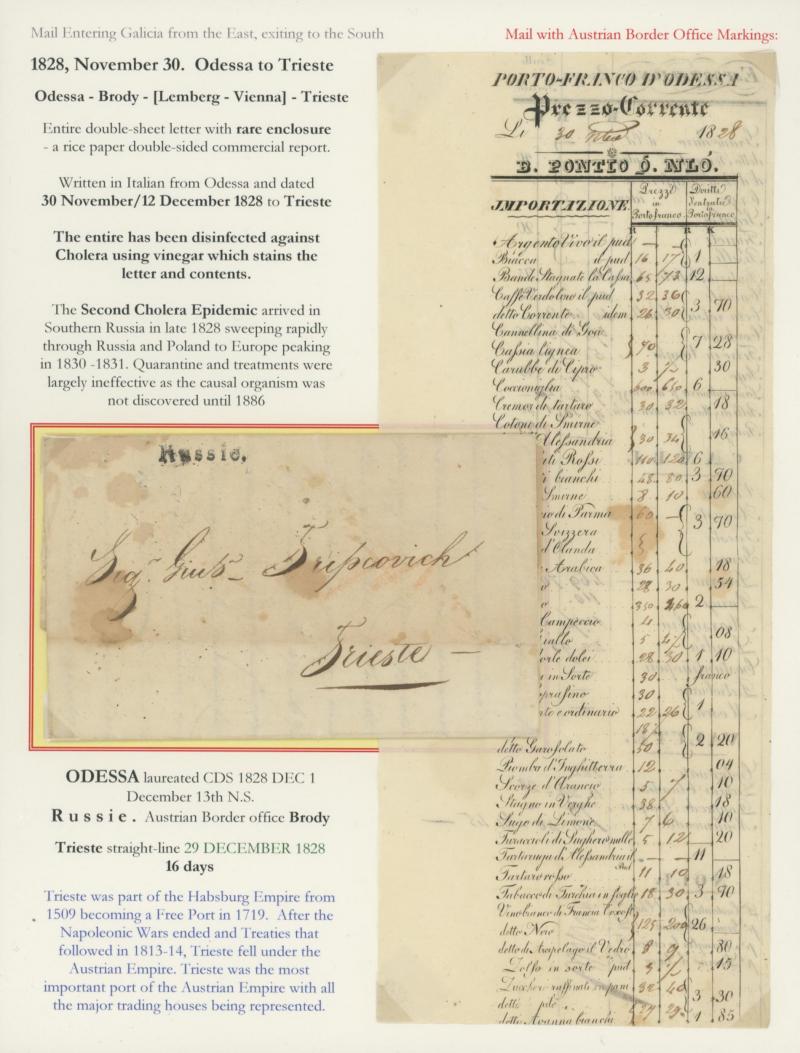 Mail Entering Galicia from the East, exiting to the South
Mail with Austrian Border Office Markings:
1828, November 30. Odessa to Trieste
Odessa - Brody - [Lemberg - Vienna] - Trieste
Entire double-sheet letter with rare enclosure
- a rice paper double-sided commercial report.
Written in Italian from Odessa and dated
30 November/12 December 1828 to Trieste
The entire has been disinfected against
Cholera using vinegar which stains the
letter and contents.
The Second Cholera Epidemic arrived in
Southern Russia in late 1828 sweeping rapidly
through Russia and Poland to Europe peaking
in 1830 -1831. Quarantine and treatments were
largely ineffective as the causal organism was
not discovered until 1886
Russie.
Trieste
ODESSA laureated CDS 1828 DEC 1
December 13th N.S.
Russie. Austrian Border office Brody
Trieste straight-line 29 DECEMBER 1828
16 days
Trieste was part of the Habsburg Empire from
1509 becoming a Free Port in 1719. After the
Napoleonic Wars ended and Treaties that
followed in 1813-14, Trieste fell under the
Austrian Empire. Trieste was the most
important port of the Austrian Empire with all
the major trading houses being represented.
PORTO-FRANCO D'ODESSA
Prezzo-Corrente
Li 30 1828
B. PONTIO Ó. NLÓ.
IMPORTAZIONE
Prezzi in Portofranco
Argento Vivo il pud
Biacca il pud 16 17 1
Bande Stagnate la Cassa 65 73 12
Caffè Verdolino il pud 32 36
detto Corrente idem 26 30 3 70
Cannellina di Goa
Cassia lignea 40 7 28
Carubbe di Cipro 3 30
Cocciniglia 600 650 6
Cremor di tartaro 30 32 18
Cotone di Smirne
Alessandria 30 34 16
Rossi 110 120 6
bianchi 48 80 3 70
Smirne 8 10 60
di Parma 60
Svizzera 3 70
d'Olanda
Arabica 36 40 18
28 30 54
350 360 2
Campeccio 4
iallo 5 08
orle dolci 28 30 1 10
in Sorte 30 franco
prafino 30
te e ordinario 22 26 1
detto Garofolato 50 2 20
Piombo d'Inghilterra 12 04
Scorze d'Arancio 5 7 10
Stagno in Verghe 38 18
Sugo di Limone 7 6 10
Turaccioli di Sughero mille 5 12 20
Tartaruga d'Alessandria il Pud 11
Tartaro rosso 11 10 18
Tabacco di Turchia in foglia 18 30 3 90
Vino bianco di Francia
detto Nero 125 200 26
detto di Arcipelago il Vedro 8 9 80
Zolfo in sorte pud 3 15
Zucchero raffinati in pani 32 40
detti pilé 3 30
detto Avanna bianchi 27 29 1 85